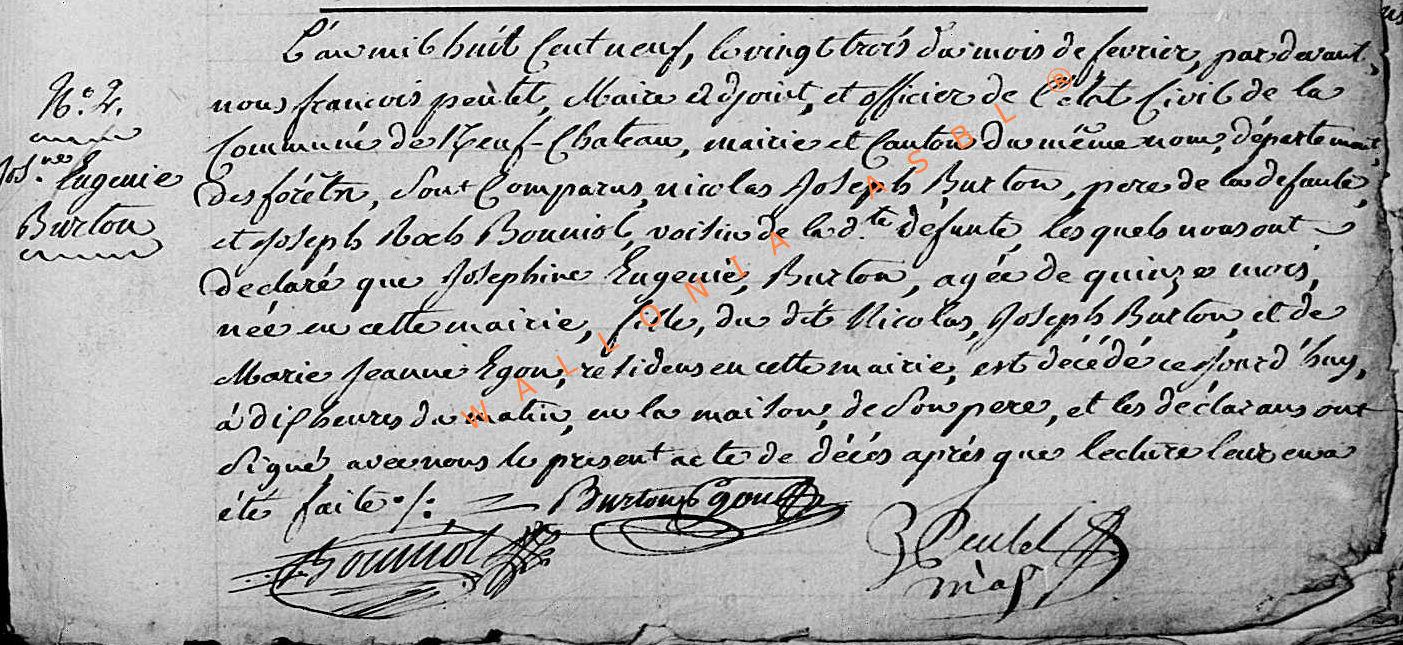 L'an mil huit Cent neuf, le vingt trois du mois de fevrier, par devant,
N.o 2.
nous françois peulet, Maire adjoint, et officier de l'état Civil de la
Commune de Neuf-Chateau, mairie et Canton du même nom, département,
Jos.ne Eugenie
des forêts, Sont Comparus, nicolas Joseph Burton, pere de la defunte,
Burton
et Joseph Roch Bouniol, voisin de la d.te défunte, les quels nous ont
declaré que Josephine Eugenie, Burton, agée de quinze mois,
née en cette mairie, fille, du dit Nicolas, Joseph Burton, et de
Marie Jeanne Egon, résidens en cette mairie, est décédé ce jourd'huy,
à dix heures du matin, en la maison, de Son pere, et les déclarans ont
Signé, avec nous le present acte de décés aprés que lecture leur en a
été faite ./.
Burton Egon
Bouniol
Peulet
m a
WALLONIA ASBL ®